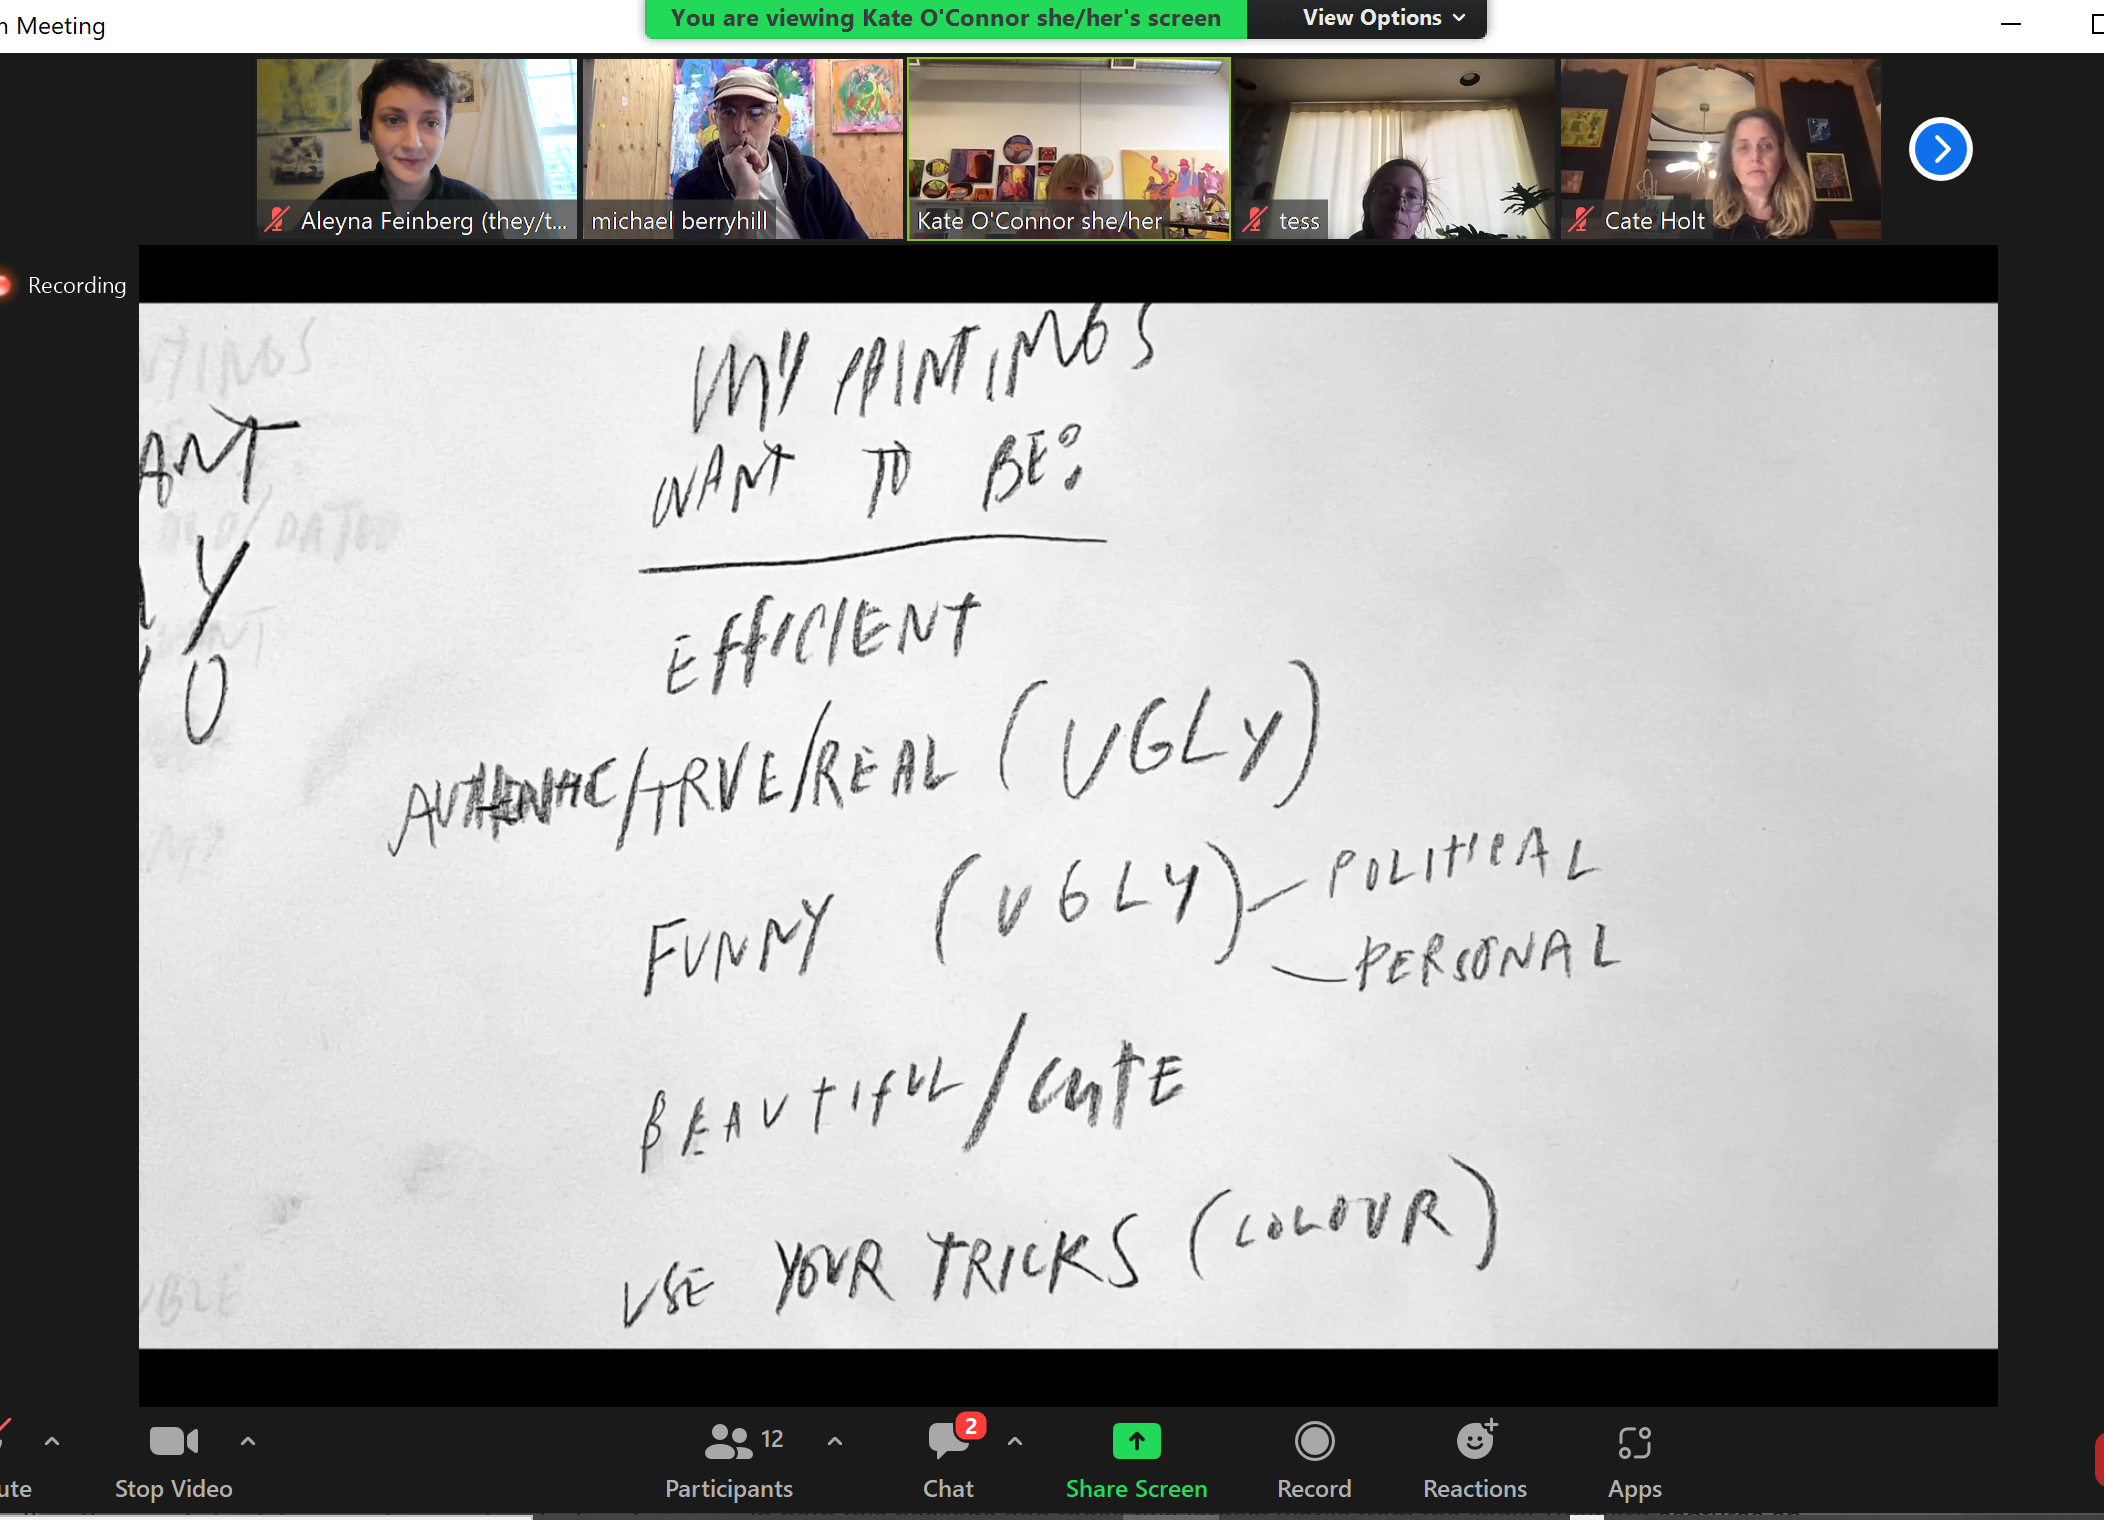 n Meeting
You are viewing Kate O'Connor she/her's screen
View Options
Aleyna Feinberg (they/t...
michael berryhill
Kate O'Connor she/her
tess
Cate Holt
Recording
NTINGS
MY PAINTINGS
ANT
WANT TO BE:
OLD/DATED
Y
EFFICIENT
O
AUTHENTIC/TRUE/REAL (UGLY)
FUNNY (UGLY) - POLITICAL
- PERSONAL
BEAUTIFUL/CUTE
USE YOUR TRICKS (COLOUR)
UBLE
ute
Stop Video
12
Participants
2
Chat
Share Screen
Record
Reactions
Apps